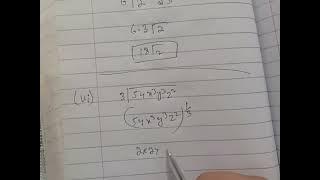 6·3√2
18√2
(vi) 3√54x³y³z²
(54x³y³z²)^1/3
2×27